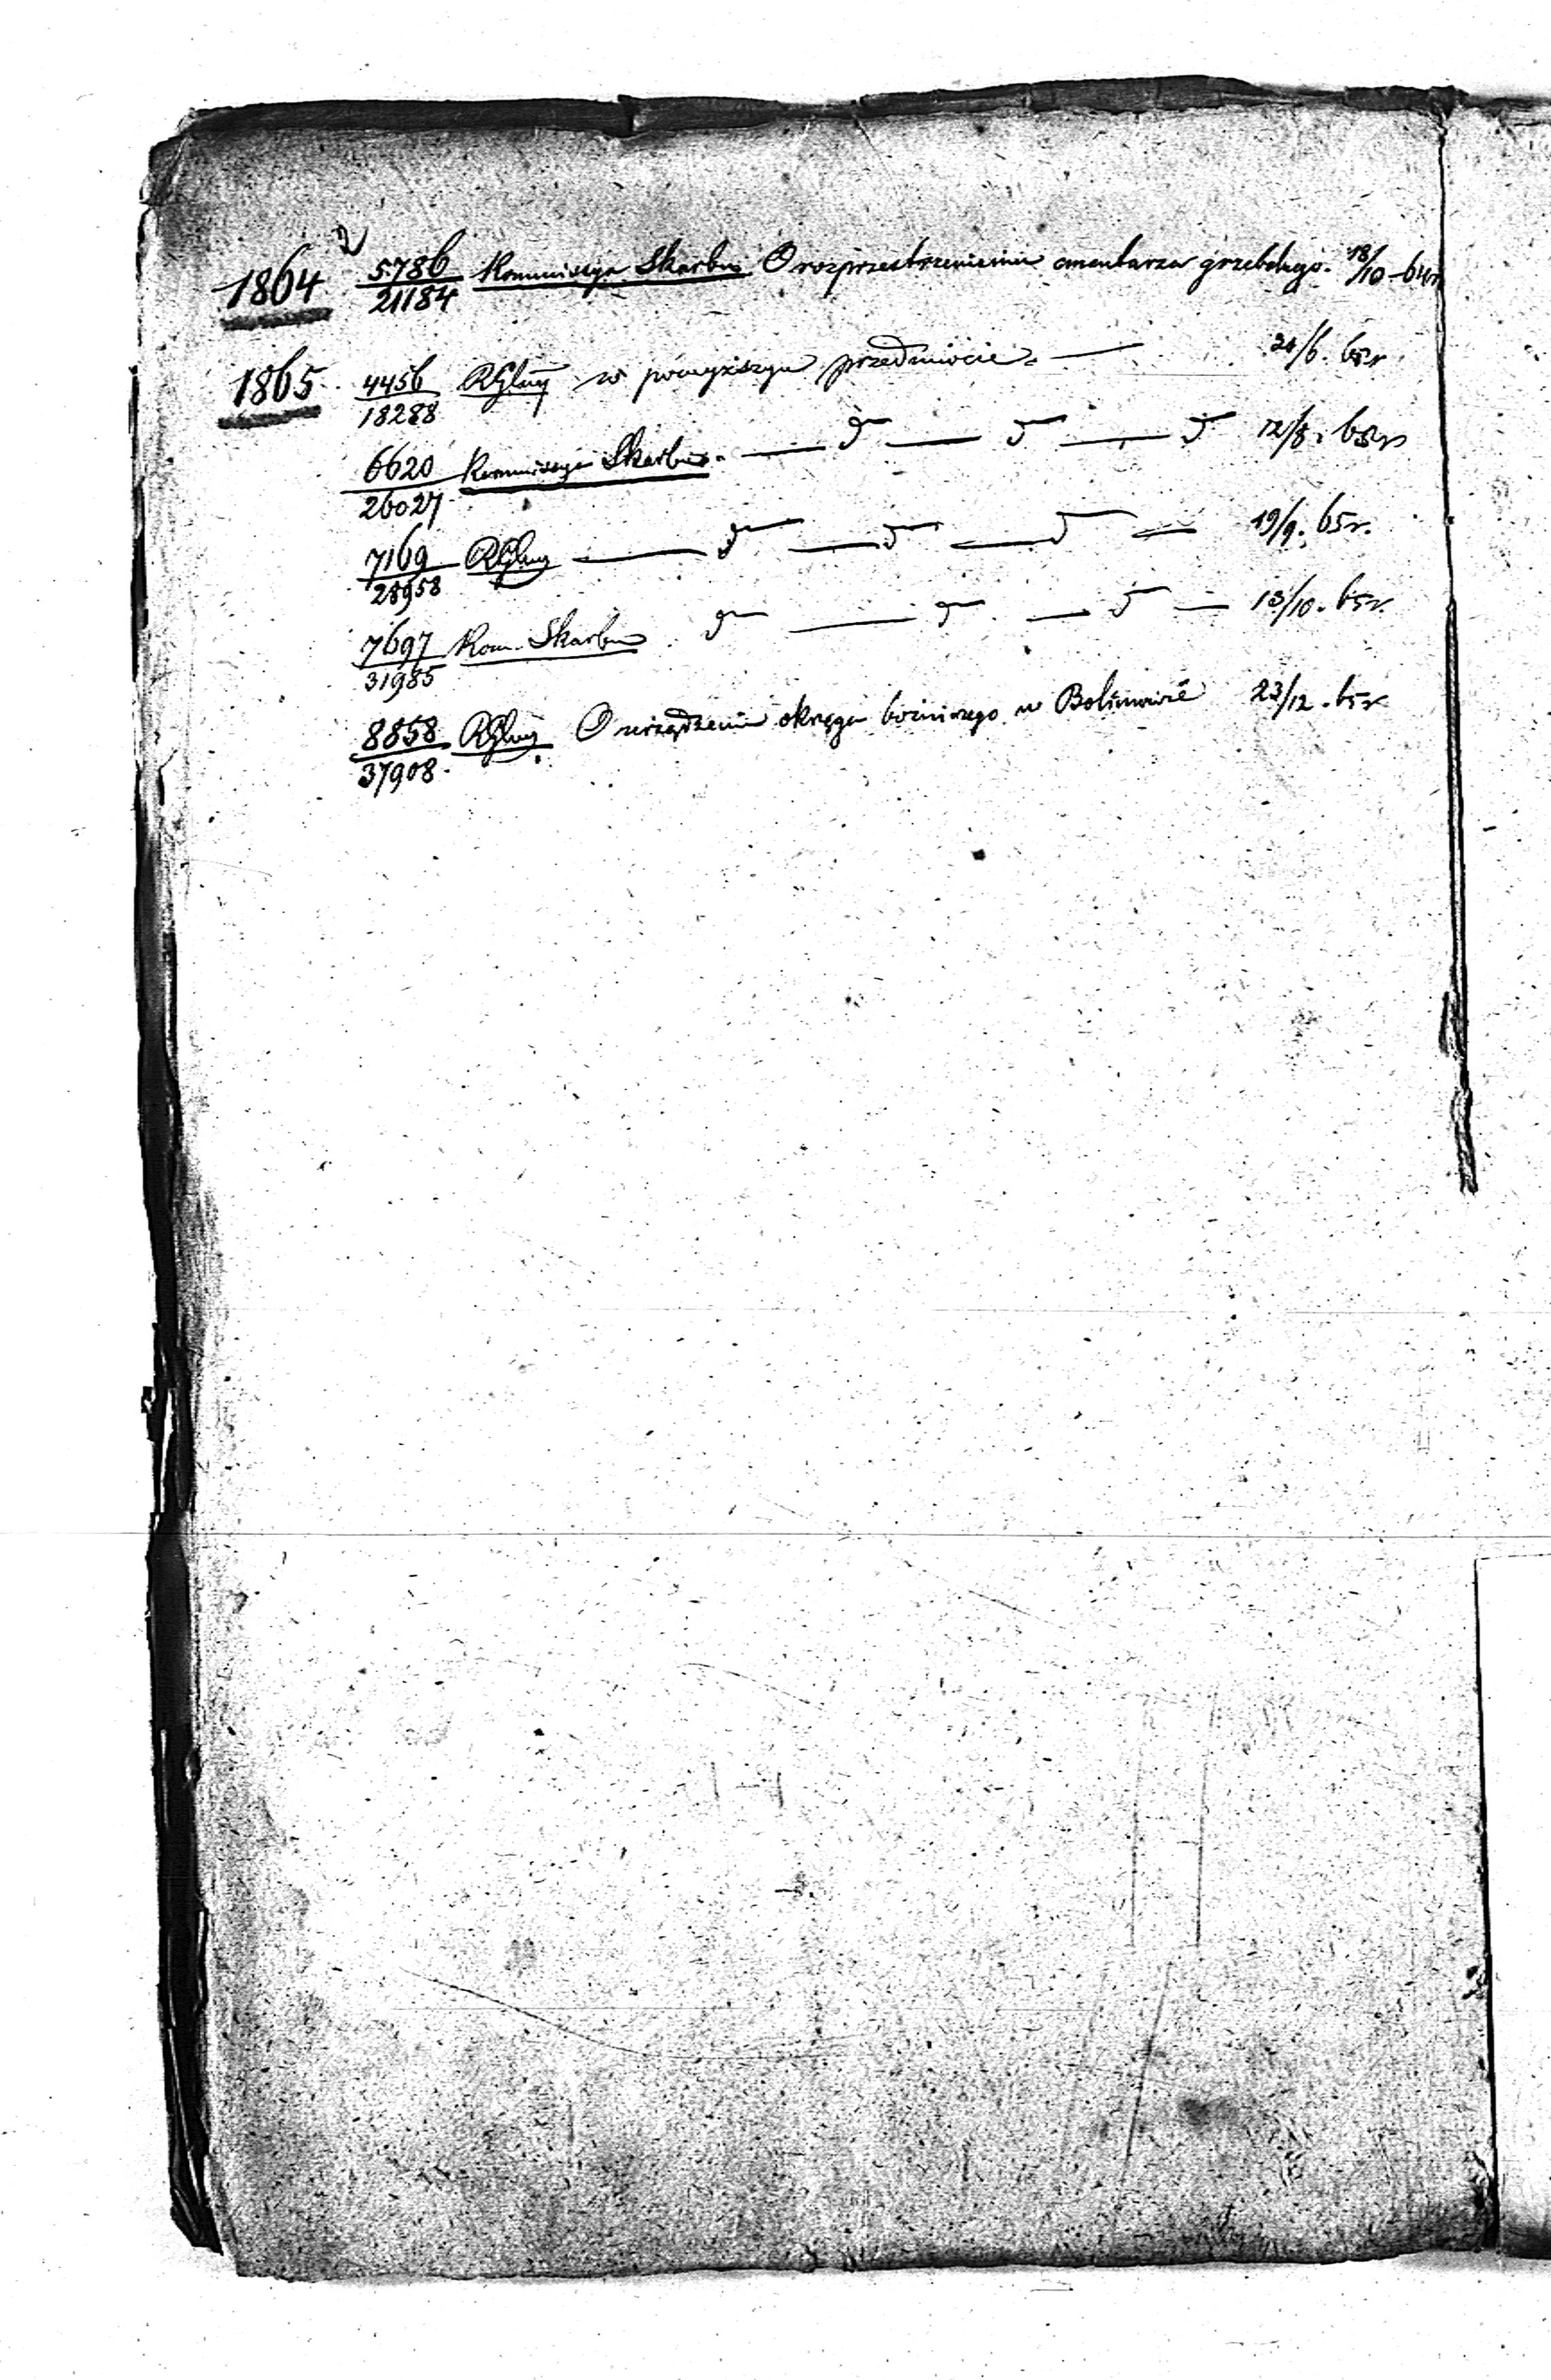 1864 5786/21184 Kommissya Skarbu O rozprzestrzenieniu cmentarza grzebalnego. 18/10 - 64r
1865 4456/18288 RGlny w powyższym przedmiocie. — 24/6. 65r
6620/26027 Kommissya Skarbu. — d° — d° — d° 12/8. 65r
7169/28958 RGlny — d° — d° — d° — 19/9. 65r.
7697/31985 Kom. Skarbu d° — d° — d° — 13/10. 65r.
8858/37908. RGlny O urządzeniu okręgu bożniczego w Bolimowie 23/12. 65r